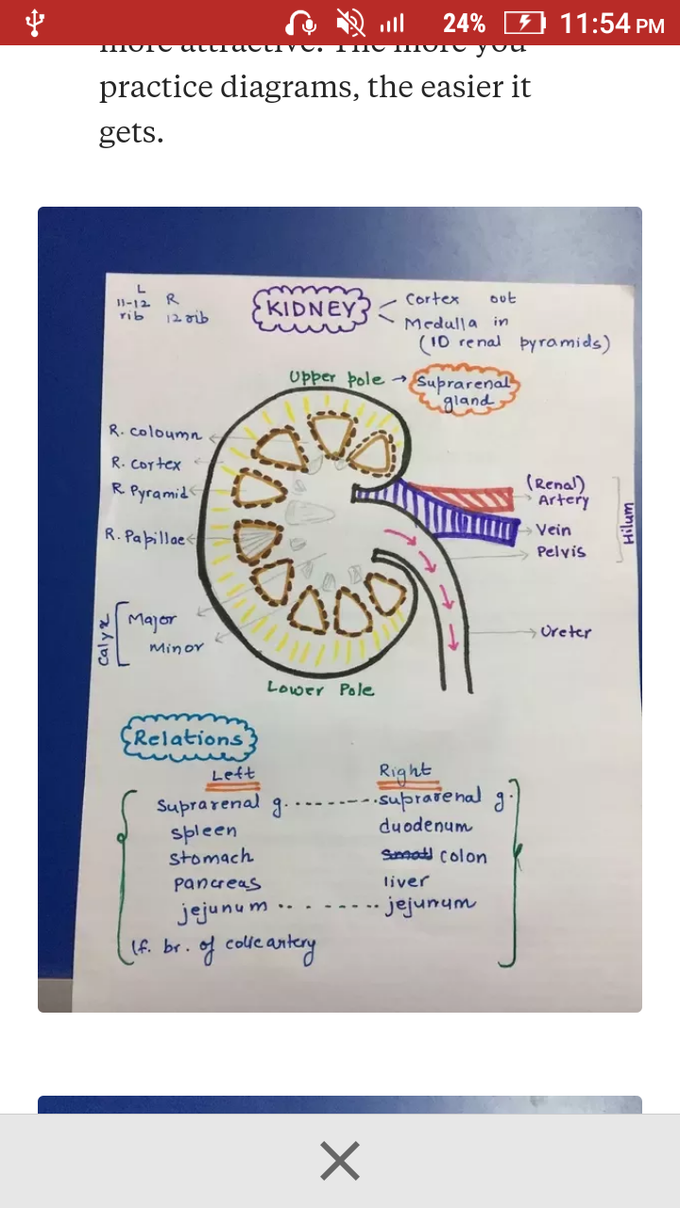 24% 11:54 PM
more attractive. The more you
practice diagrams, the easier it
gets.
L R
11-12 rib 12 rib
KIDNEY
Cortex out
Medulla in
(10 renal pyramids)
Upper pole → Suprarenal
gland
R. coloumn
R. cortex
R Pyramid
R. Papillae
Calyx
Major
Minor
(Renal)
Artery
Vein
Pelvis
Hilum
Ureter
Lower Pole
Relations
Left Right
Suprarenal g. --------- suprarenal g.
spleen duodenum
stomach small colon
pancreas liver
jejunum -- - ----- jejunum
lf. br. of colic artery